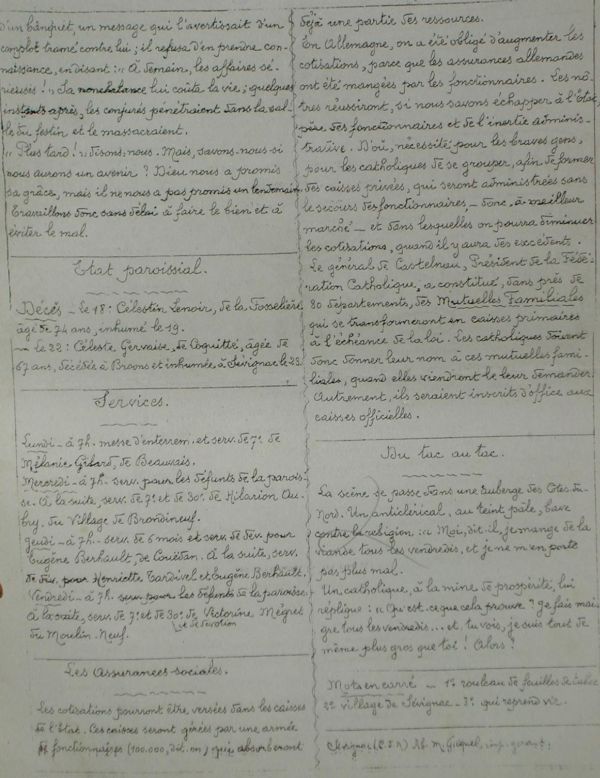 d'un banquet, un message qui l'avertissait d'un
complot tramé contre lui ; il refusa d'en prendre con-
naissance, en disant : « À demain, les affaires sé-
rieuses. » Sa nonchalance lui coûta la vie ; quelques
instants après, les conjurés pénétraient dans la sal-
le du festin et le massacraient.
« Plus tard ! » disons-nous. Mais, savons-nous si
nous aurons un avenir ? Dieu nous a promis
sa grâce, mais il ne nous a pas promis un lendemain
Travaillons donc sans délai à faire le bien et à
éviter le mal.
Etat paroissial.
Décès – Le 18 : Célestin Lenoir, de la Fosselière
âgé de 74 ans, inhumé le 19.
— le 22 : Céleste Gervaise, de Coquitté, âgée de
67 ans, décédée à Broons et inhumée à Sévignac le 23
Services.
Lundi – à 7h. messe d'enterrem. et serv. de 7e de
Mélanie Gilard, de Beauvais.
Mercredi – à 7h. serv. pour les défunts de la parois-
se. À la suite, serv. de 7e et de 30e de Hilarion Au-
bry, du Village de Brondineuf.
Jeudi – à 7h. – serv. de 6 mois et serv. de dév. pour
Eugène Berhault, de Couëdan. À la suite, serv.
de dév. pour Henriette Tardivel et Eugène Berhault.
Vendredi – à 7h. serv. pour les défunts de la paroisse
À la suite, serv. de 7e et de 30e de Victorine Mégret
du Moulin-Neuf.
de dévotion
Les Assurances sociales.
Les cotisations pourront être versées dans les caisses
de l'Etat. Ces caisses seront gérées par une armée
de fonctionnaires (100.000, dit-on) qui absorberont
déjà une partie des ressources.
En Allemagne, on a été obligé d'augmenter les
cotisations, parce que les assurances allemandes
ont été mangées par les fonctionnaires. Les nô-
tres réussiront, si nous savons échapper à l'Etat,
des fonctionnaires et de l'inertie adminis-
trative. D'où, nécessité pour les braves gens,
pour les catholiques de se grouper, afin de former
des caisses privées, qui seront administrées sans
le secours des fonctionnaires, – donc, à meilleur
marché – et dans lesquelles on pourra diminuer
les cotisations, quand il y aura des excédents.
Le général de Castelnau, Président de la Fédé-
ration Catholique, a constitué, dans près de
80 départements, des Mutuelles Familiales
qui se transformeront en caisses primaires
à l'échéance de la loi. Les catholiques doivent
donc donner leur nom à ces mutuelles fami-
liales, quand elles viendront le leur demander
Autrement, ils seraient inscrits d'office aux
caisses officielles.
Du tac au tac.
La scène se passe dans une auberge des Côtes-du-
Nord. Un anticlérical, au teint pâle, bave
contre la religion. « Moi, dit-il, je mange de la
viande tous les vendredis, et je ne m'en porte
pas plus mal.
Un catholique, à la mine de prospérité, lui
réplique : « Qu'est-ce que cela prouve ? Je fais mai-
gre tous les vendredis... et tu vois, je suis tout de
même plus gros que toi ! Alors ?
Mots en carré – 1° rouleau de feuilles de tabac
2° village de Sévignac – 3° qui reprend vie.
Sévignac (C.d.N) Ab. M. Guiguel, imp. gérant.